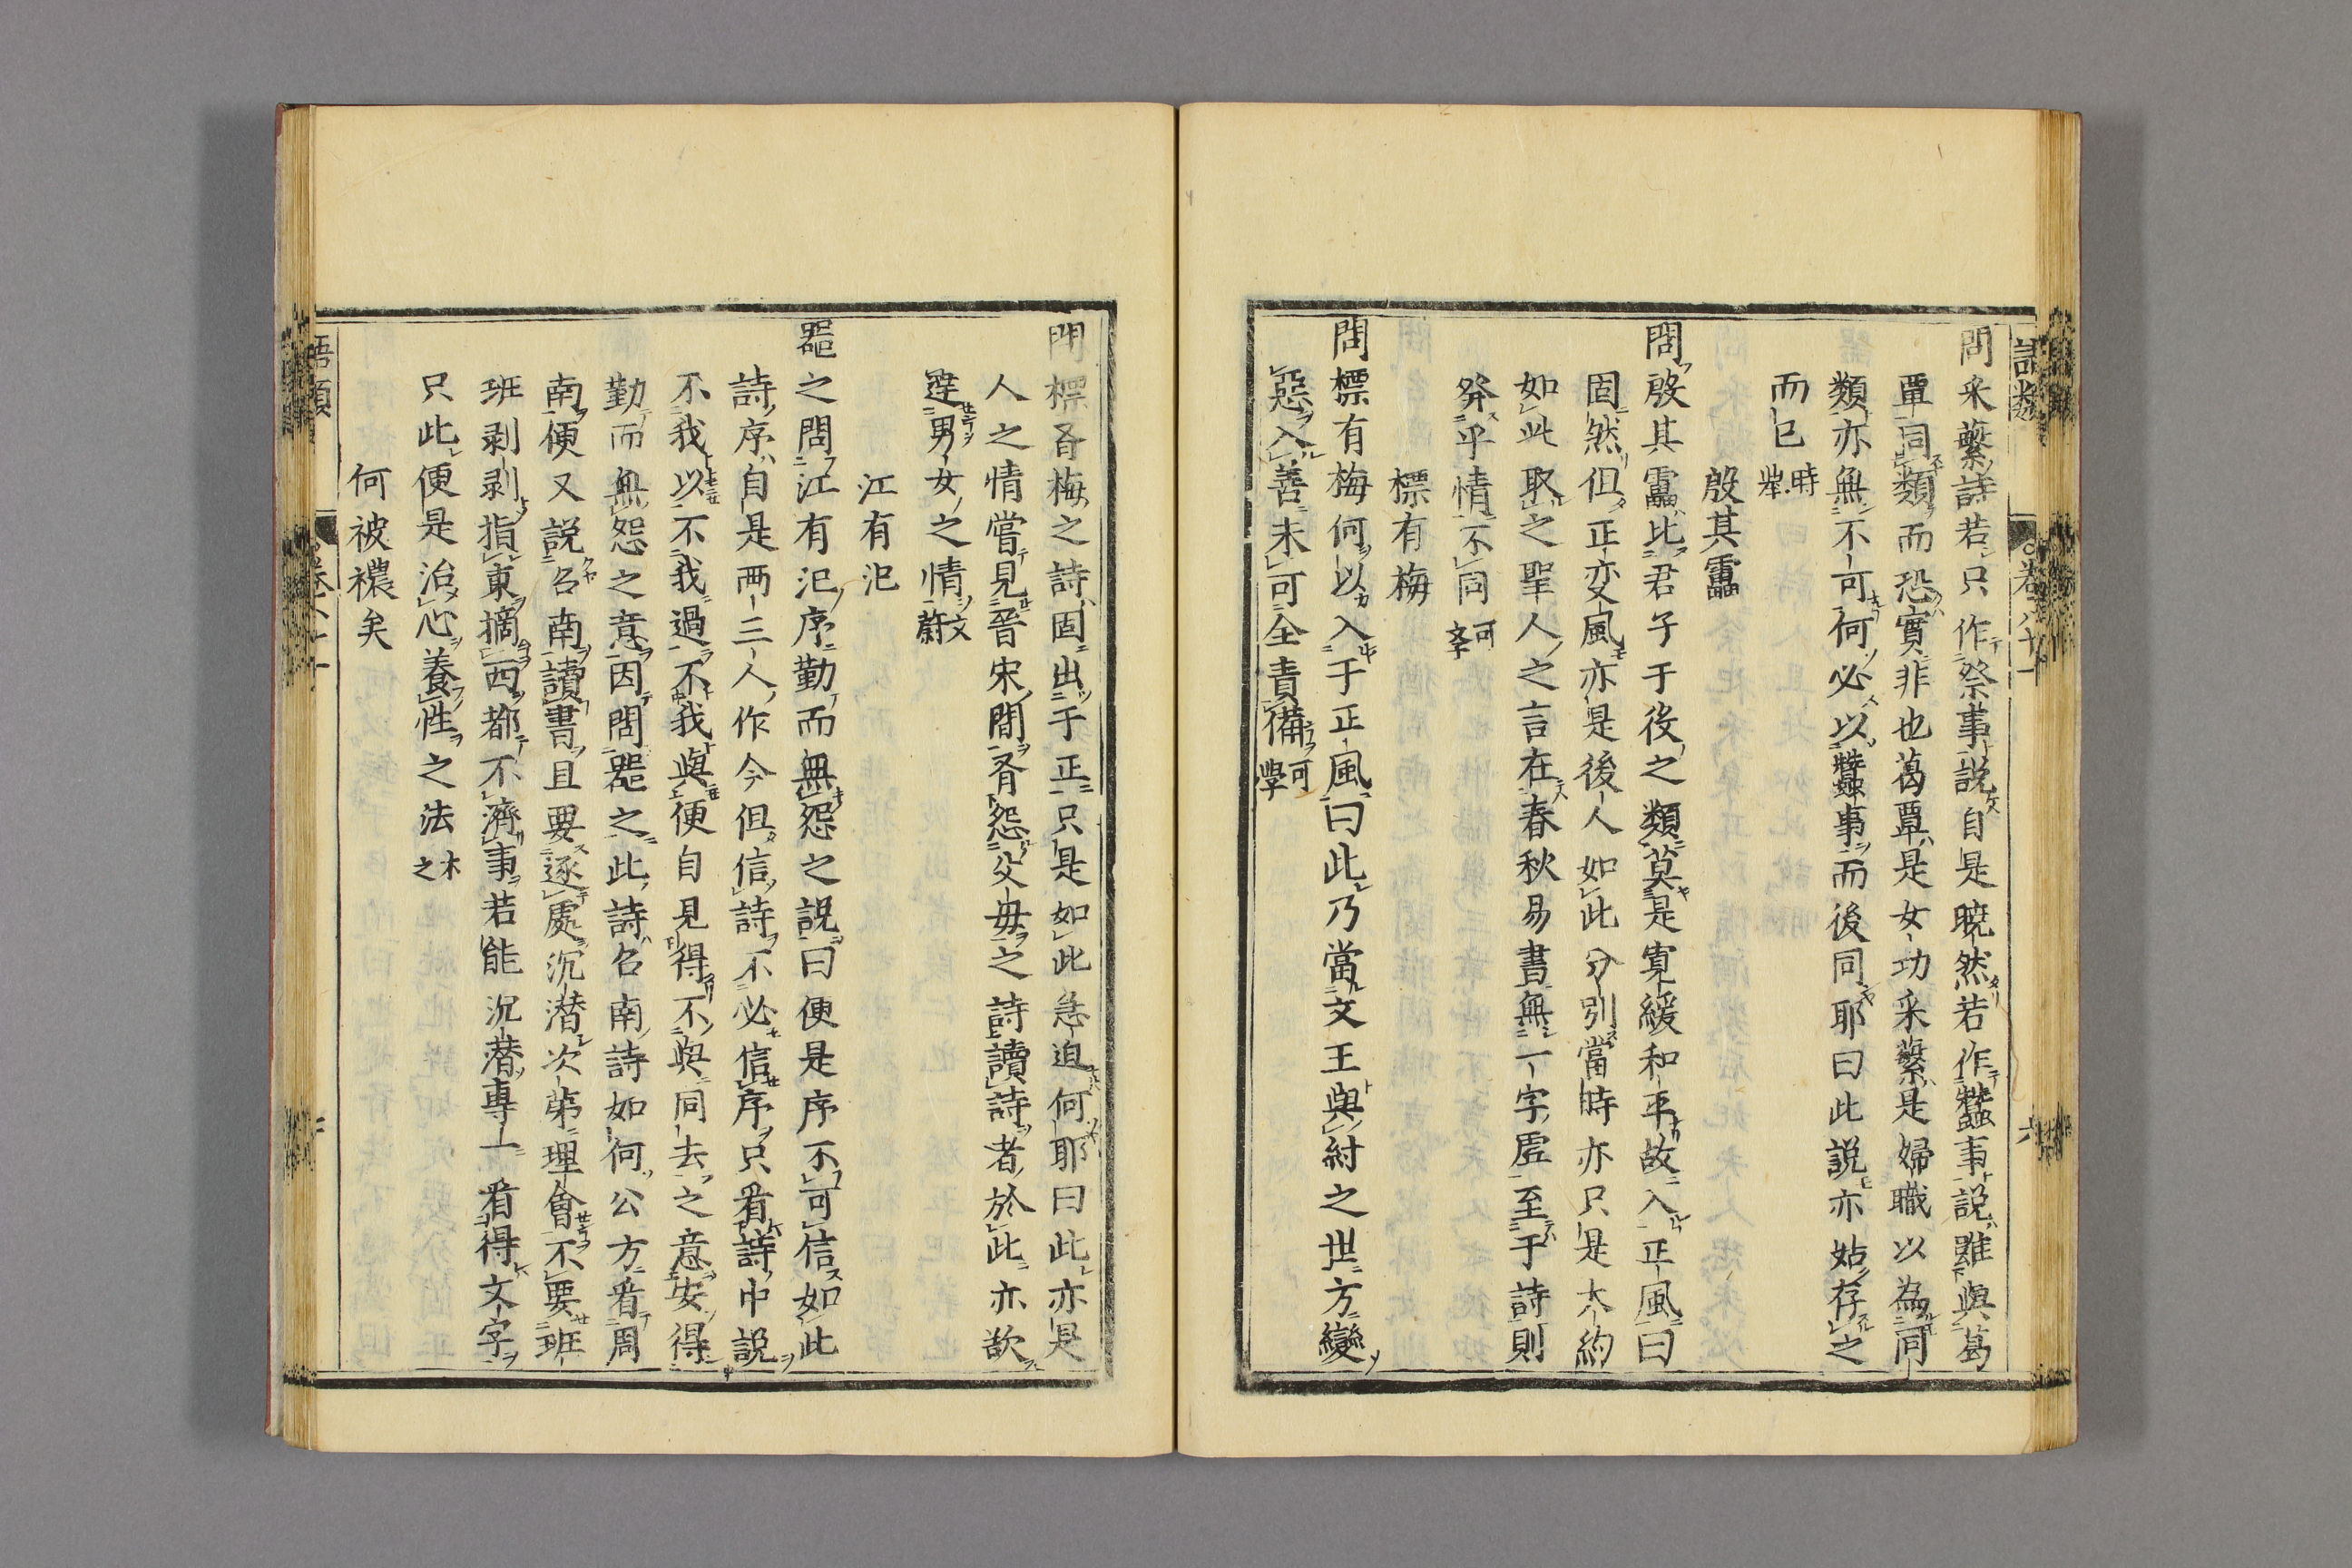 問采蘩詩若只作祭事説自是暁然若作蠶事説雖與葛
覃同類而恐實非也葛覃是女功采蘩是婦職以為同
類亦無不可何必以蠶事而後同耶曰此説亦姑存之
而已時舉
殷其靁
問殷其靁比君子于役之類莫是寛緩和平故入正風曰
固然但正変風亦是後人如此分別當時亦只是大約
如此取之聖人之言在春秋易書無一字虚至于詩則
發乎情不同可學
標有梅
問標有梅何以入于正風曰此乃當文王與紂之世方變
惡入善未可全責備可學
問標有梅之詩固出于正只是如此急迫何耶曰此亦是
人之情嘗見晉宋間有怨父母之詩讀詩者於此亦欲
達男女之情文蔚
江有汜
器之問江有汜序勤而無怨之説曰便是序不可信如此
詩序自是两三人作今但信詩不必信序只看詩中説
不我以不我過不我與便自見得不與同去之意安得
勤而無怨之意因問器之此詩召南詩如何公方看周
南便又説召南讀書且要逐處沉潜次第理會不要班
班剥剥指東摘西都不濟事若能沉潜專一看得文字
只此便是治心養性之法木之
何彼襛矣
語類
卷八十一
六